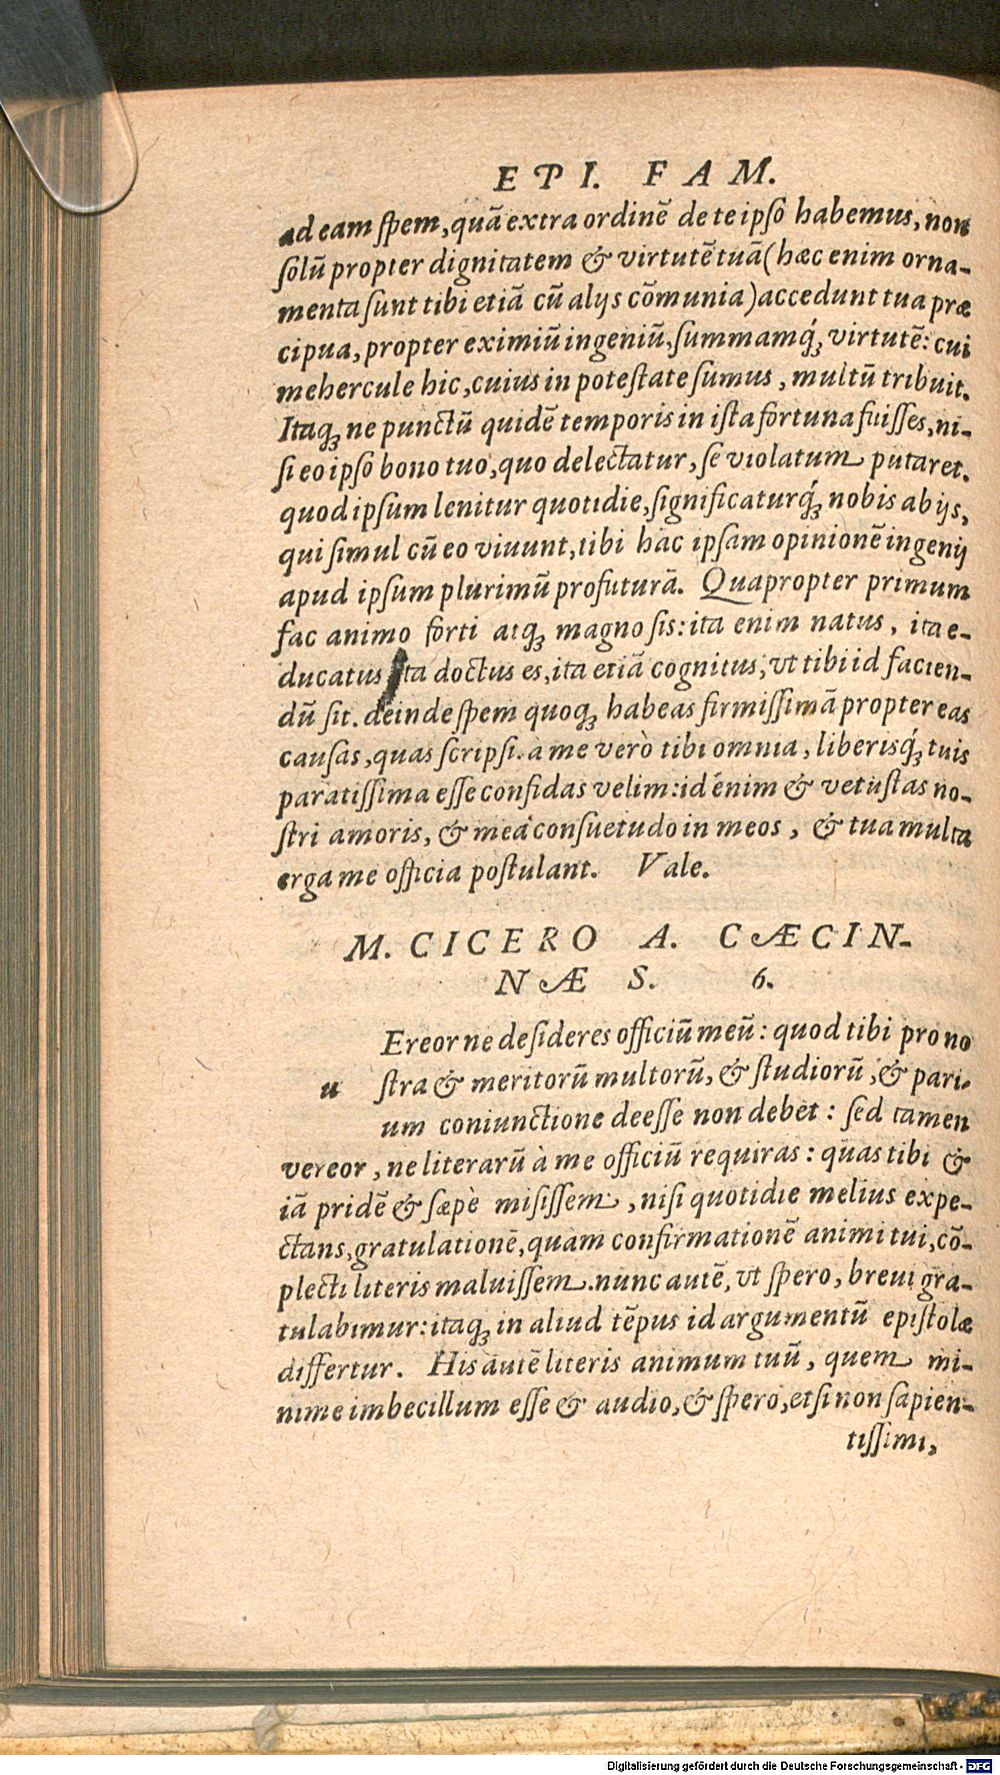 EPI. FAM.
ad eam spem, quā extra ordinē de te ipso habemus, non
solū propter dignitatem & virtutē tuā (hæc enim orna-
menta sunt tibi etiā cū alijs cōmunia) accedunt tua præ
cipua, propter eximiū ingeniū, summamq́ꝫ virtutē: cui
mehercule hic, cuius in potestate sumus, multū tribuit.
Itaqꝫ ne punctū quidē temporis in ista fortuna fuisses, ni-
si eo ipso bono tuo, quo delectatur, se violatum putaret.
quod ipsum lenitur quotidie, significaturq́ꝫ nobis ab ijs,
qui simul cū eo viuunt, tibi hāc ipsam opinionē ingenij
apud ipsum plurimū profuturā. Quapropter primum
fac animo forti atqꝫ magno sis: ita enim natus, ita e-
ducatus ita doctus es, ita etiā cognitus, vt tibi id facien-
dū sit. deinde spem quoqꝫ habeas firmissimā propter eas
causas, quas scripsi. a me verò tibi omnia, liberisq́ꝫ tuis
paratissima esse confidas velim: id enim & vetustas no-
stri amoris, & mea consuetudo in meos, & tua multa
erga me officia postulant. Vale.
M. CICERO A. CÆCIN-
NÆ S. 6.
Ereor ne desideres officiū meū: quod tibi pro no
u stra & meritorū multorū, & studiorū, & pari-
um coniunctione deesse non debet: sed tamen
vereor, ne literarū à me officiū requiras: quas tibi &
iā pridē & sæpè misissem, nisi quotidie melius expe-
ctans, gratulationē, quam confirmationē animi tui, cō-
plecti literis maluissem. nunc autē, vt spero, breui gra-
tulabimur: itaqꝫ in aliud tēpus id argumentū epistolæ
differtur. His autē literis animum tuū, quem mi-
nime imbecillum esse & audio, & spero, etsi non sapien-
tissimi,
Digitalisierung gefördert durch die Deutsche Forschungsgemeinschaft - DFG